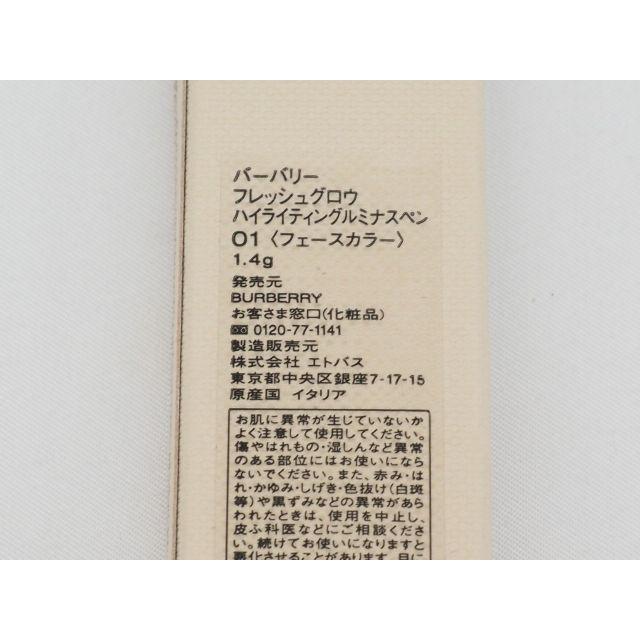 バーバリー
フレッシュグロウ
ハイライティングルミナスペン
01〈フェースカラー〉
1.4g
発売元
BURBERRY
お客さま窓口(化粧品)
0120-77-1141
製造販売元
株式会社 エトバス
東京都中央区銀座7-17-15
原産国 イタリア
お肌に異常が生じていないか
よく注意して使用してください。
傷やはれもの・湿しんなど異常
のある部位にはお使いになら
ないでください。また、赤み・は
れ・かゆみ・しげき・色抜け(白斑
等)や黒ずみなどの異常があら
われたときは、使用を中止し、
皮ふ科医などにご相談くださ
い。続けてお使いになりますと
悪化させることがあります。目に